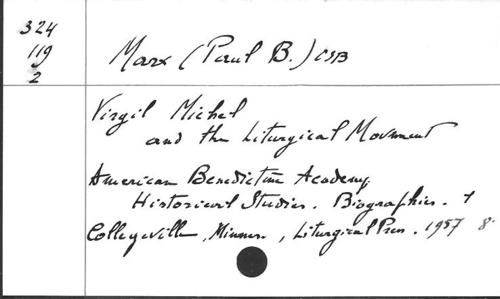 324
119
2
Marx (Paul B.) CSB
Virgil Michel
and the Liturgical Movement
American Benedictine Academy
Historical Studies. Biographies. 1
Collegeville, Minnes., Liturgical Press. 1957 8°